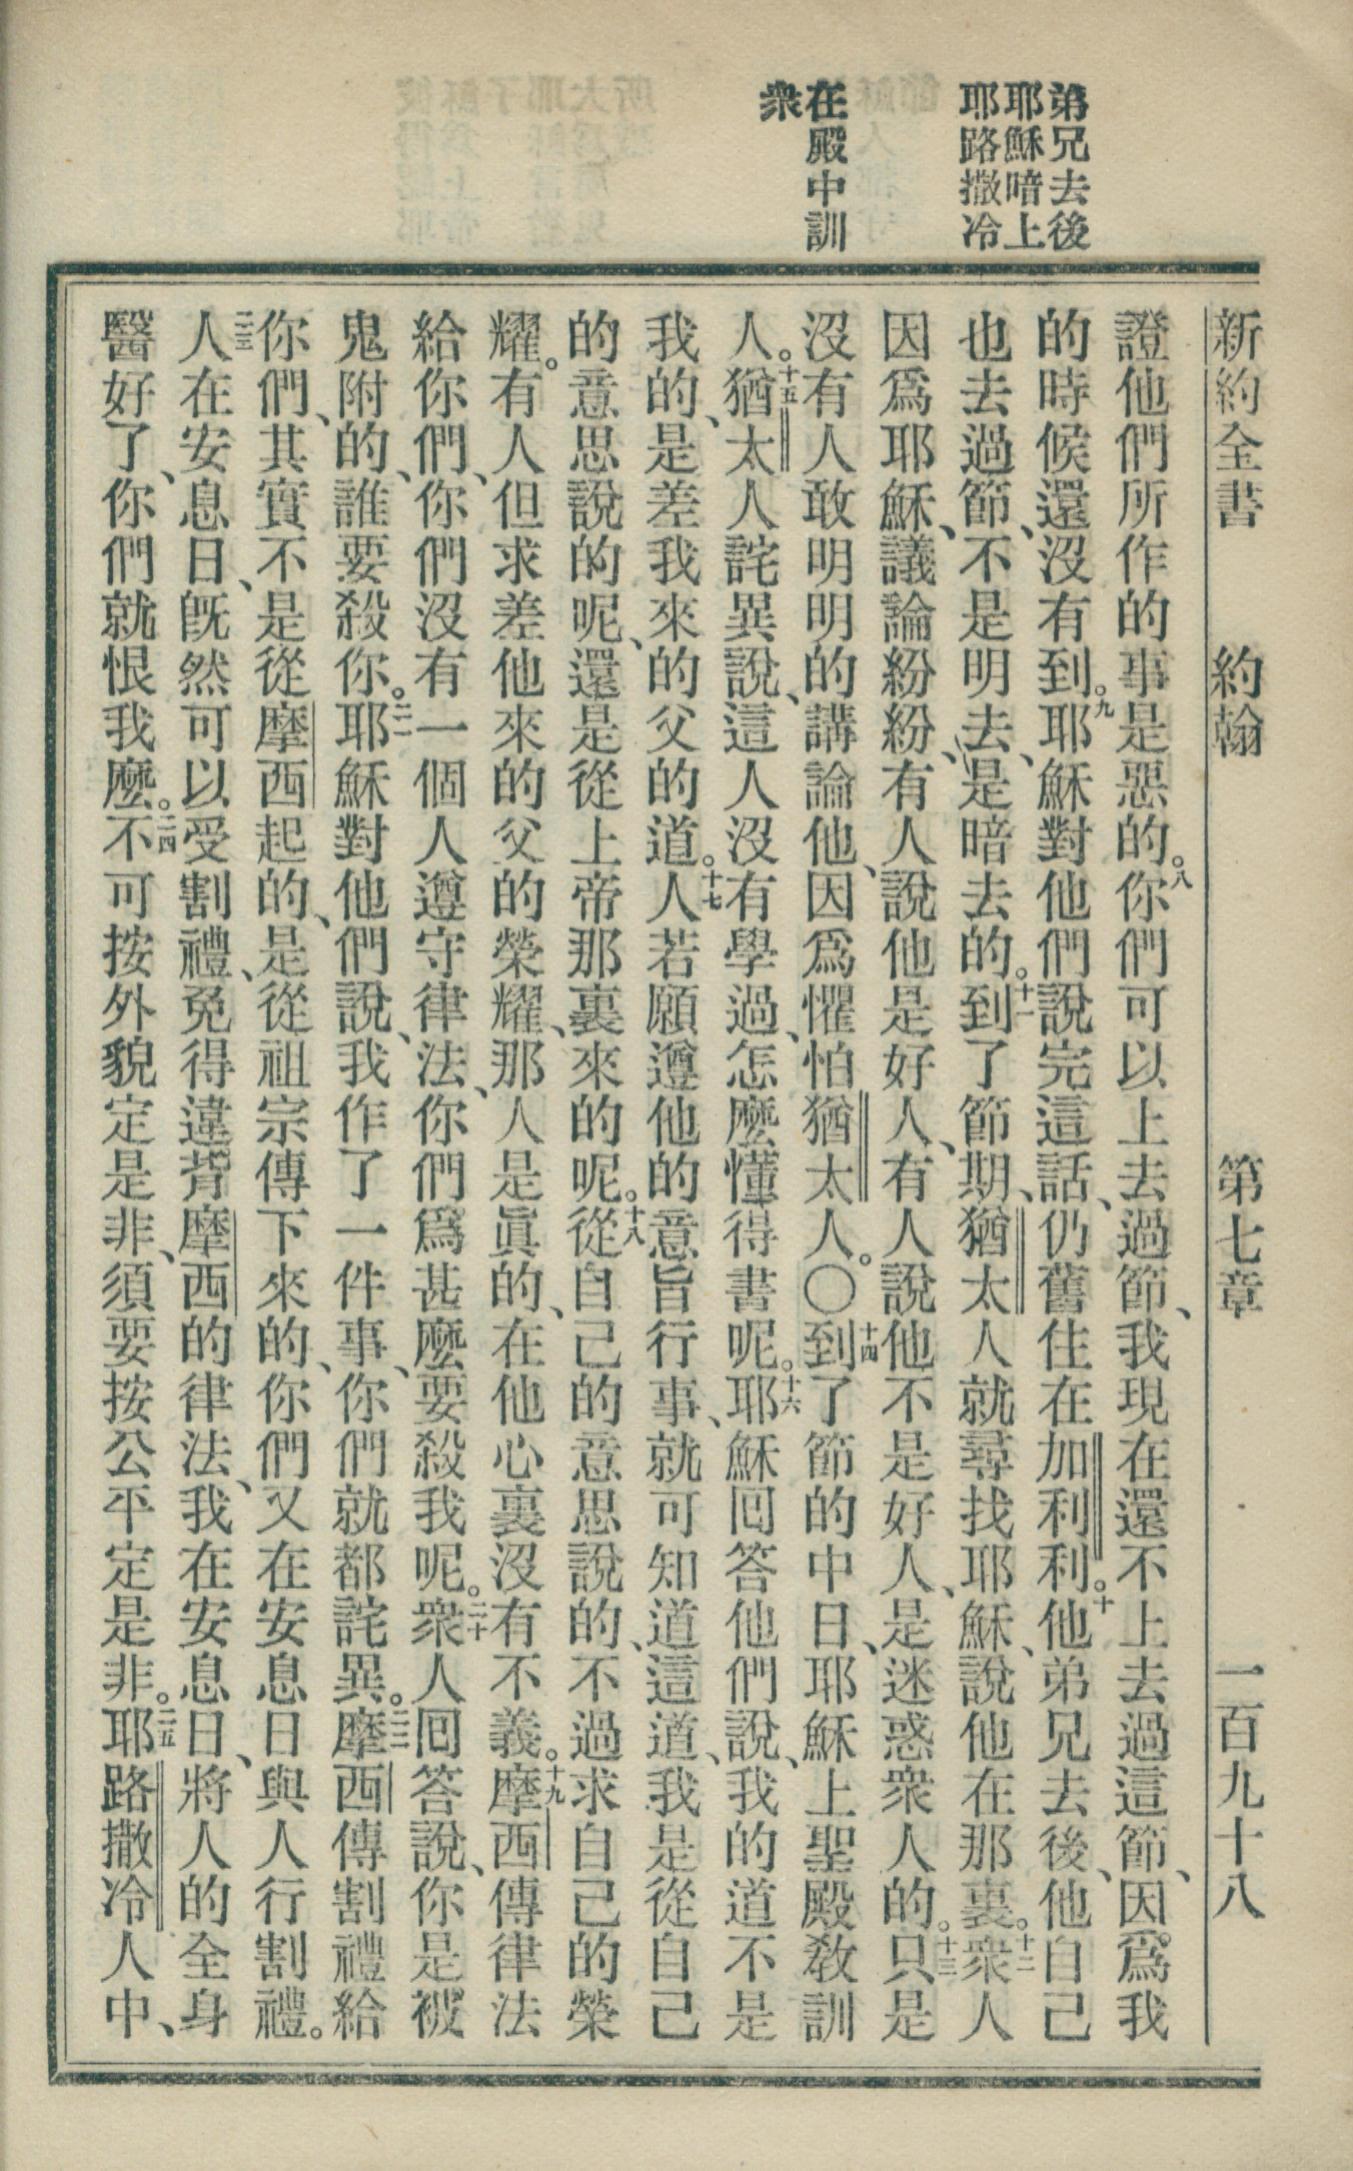 弟兄去後
耶穌暗上
耶路撒冷
在殿中訓
衆
新約全書 約翰 第七章 一百九十八
證他們所作的事是惡的。八你們可以上去過節、我現在還不上去過這節、因爲我
的時候還沒有到。九耶穌對他們說完這話、仍舊住在加利利。十他弟兄去後、他自己
也去過節、不是明去、是暗去的。十一到了節期、猶太人就尋找耶穌、說他在那裏。十二衆人
因爲耶穌、議論紛紛、有人說他是好人、有人說他不是好人、是迷惑衆人的。十三只是
沒有人敢明明的講論他、因爲懼怕猶太人。〇十四到了節的中日、耶穌上聖殿教訓
人。十五猶太人詫異說、這人沒有學過、怎麽懂得書呢。十六耶穌回答他們說、我的道不是
我的、是差我來的父的道。十七人若願遵他的意旨行事、就可知道這道、我是從自己
的意思說的呢、還是從上帝那裏來的呢。十八從自己的意思說的、不過求自己的榮
耀。有人但求差他來的父的榮耀、那人是眞的、在他心裏沒有不義。十九摩西傳律法
給你們、你們沒有一個人遵守律法、你們爲甚麽要殺我呢。二十衆人回答說、你是被
鬼附的、誰要殺你。二一耶穌對他們說、我作了一件事、你們就都詫異。二二摩西傳割禮給
你們、其實不是從摩西起的、是從祖宗傳下來的、你們又在安息日與人行割禮。
二三人在安息日、旣然可以受割禮、免得違背摩西的律法、我在安息日、將人的全身
醫好了、你們就恨我麽。二四不可按外貌定是非、須要按公平定是非。二五耶路撒冷人中、